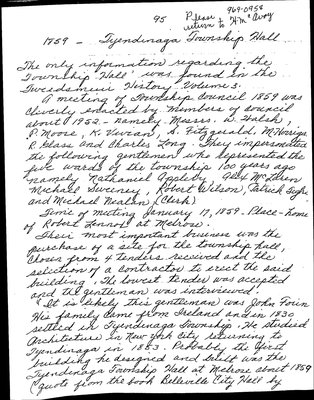 969-0958
95 Please
return to H McAvoy
1759 - Tyendinaga Township Hall
The only information regarding the
Township Hall was found in the
Tweedsmuir History Volume 3.
A meeting of Township Council 1859 was
cleverly enacted by Members of council
about 1952. Namely Messrs. D. Walsh,
P. Moore, K. Vivian, S. Fitzgerald,
R. Blase and Charles Long. They impersonated
the following gentlemen who represented the
five wards of the township 100 years ago
namely Nathaniel Appleby
Michael Sweeney, Robert Wilson, Patrick
and Michael Nealon (Clerk)
Time of meeting January 17, 1859. Place - home
of Robert Lennox at Melrose.
Their most important business was the
purchase of a site for the township hall,
chosen from 4 tenders received and the
selection of a contractor to erect the said
building. The lowest tender was accepted
and the gentleman was interviewed.
It is likely this gentleman was John Forin
His family came from Ireland and in 1830
settled in Tyendinaga Township. He studied
Architecture in New York City returning to
Tyendinaga in 1853. Probably the first
building he designed and built was the
Tyendinaga Township Hall at Melrose about 1859
(quote from the book Belleville City Hall by